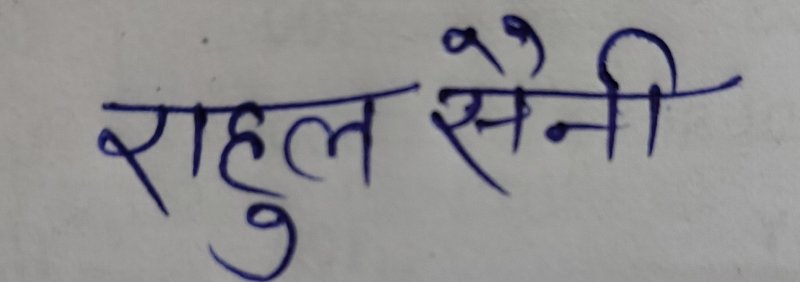 राहुल सैनी